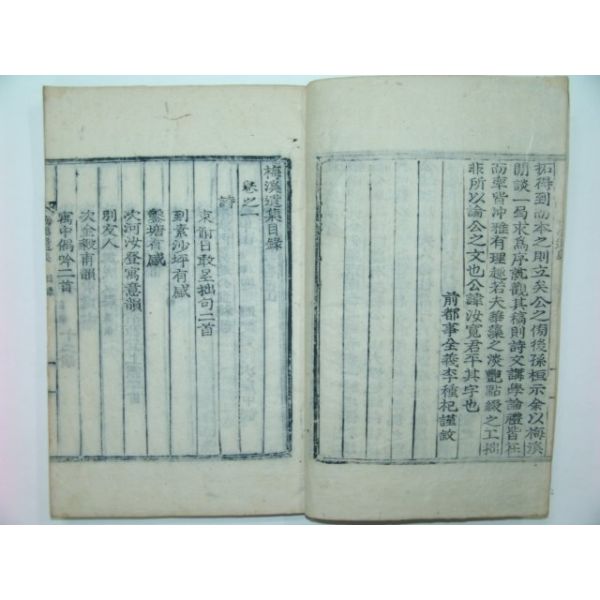 拓得到而本之則立矣公之傍後孫桓示余以梅溪
問談一局求為序就觀其稿則詩文講學論禮皆在
而率皆冲雅有理趣若夫華藻之淡艷點綴之工拙
非所以論公之文也公諱汝寬君平其字也
前都事全義李種杞謹敘
梅溪遺集目錄
卷之一
詩
東謝日敢呈拙句二首
到素沙坪有感
鑿塘有感
次河汝登寓意韻
別友人
次金毅甫韻
寓中偶吟二首